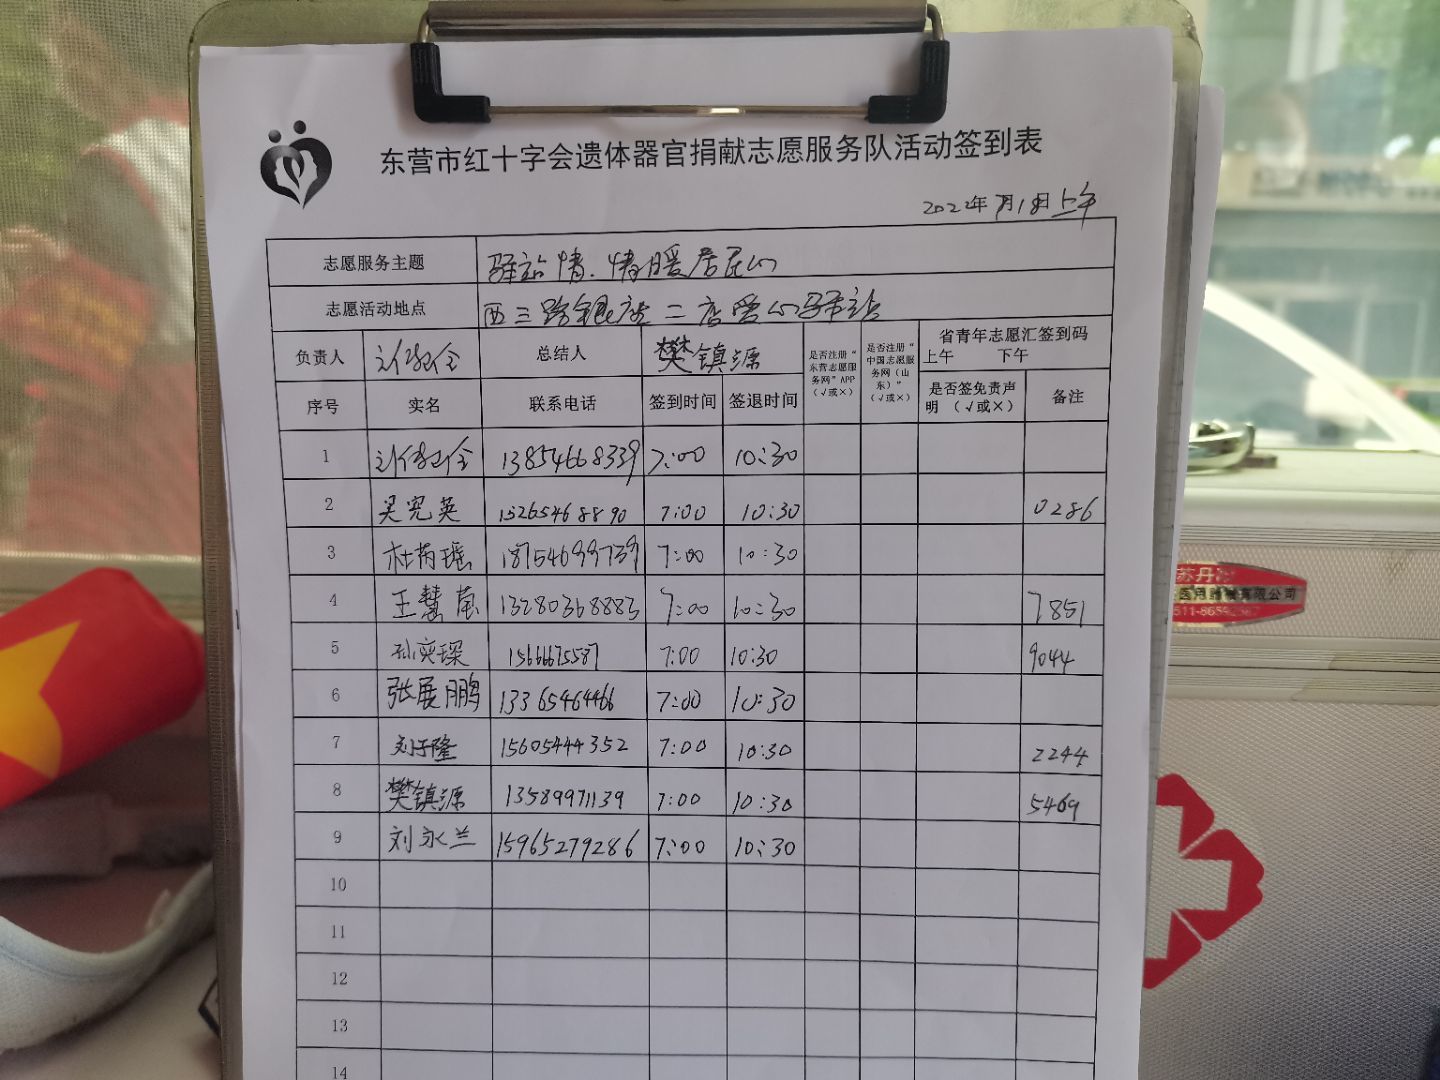 东营市红十字会遗体器官捐献志愿服务队活动签到表
2022年7月18日上午
志愿服务主题 驿站情.情暖居民心
志愿活动地点 西三路银座二店爱心驿站
负责人 总结人 樊镇源 是否注册“东营志愿服务网”APP（√或×） 是否注册“中国志愿服务网（山东）”（√或×） 省青年志愿汇签到码 上午 下午
序号 实名 联系电话 签到时间 签退时间 是否签免责声明（√或×） 备注
1 13854668339 7:00 10:30
2 吴宪英 15265468890 7:00 10:30 0286
3 杜芮瑶 18754699739 7:00 10:30
4 王慧莹 13280368883 7:00 10:30 7851
5 孙奕琛 15666675587 7:00 10:30 9044
6 张展鹏 13365464466 7:00 10:30
7 刘子隆 15605444352 7:00 10:30 2244
8 樊镇源 13589971139 7:00 10:30 5469
9 刘永兰 15965279286 7:00 10:30
10
11
12
13
14
苏丹
医用器械有限公司